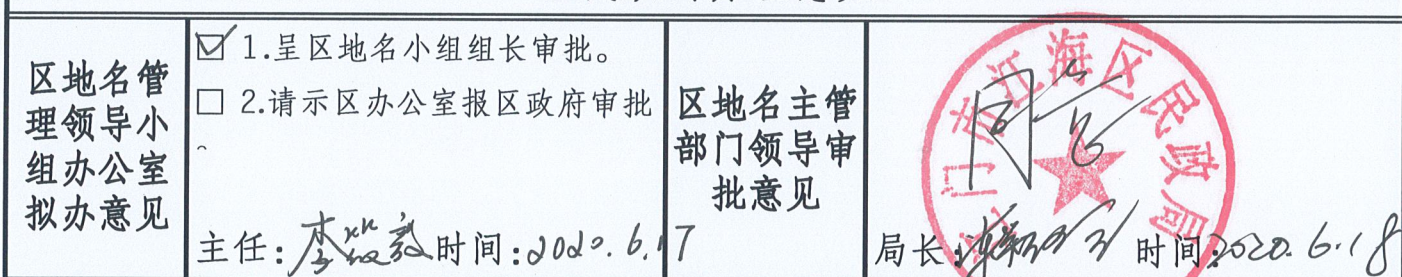 区地名管
理领导小
组办公室
拟办意见
☑ 1.呈区地名小组组长审批。
☐ 2.请示区办公室报区政府审批
。
主任: 时间:2020.6.17
区地名主管
部门领导审
批意见
同意
江门市江海区民政局
局长: 时间:2020.6.18